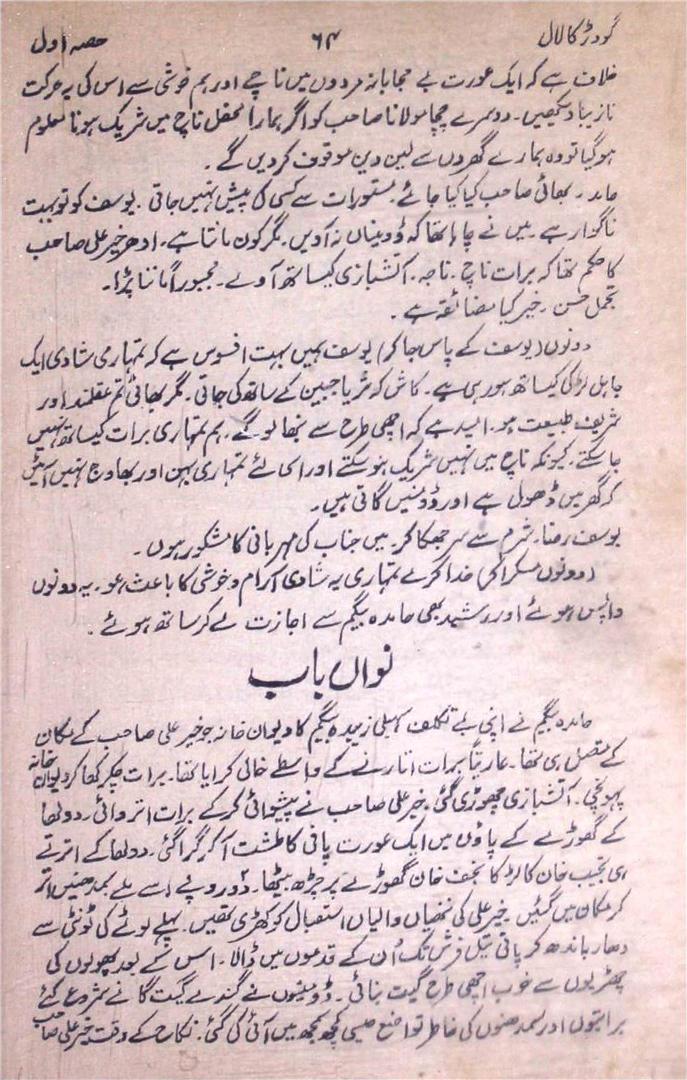 گودڑ کا لال ۶۴ حصہ اول
خلاف ہے کہ ایک عورت بے حجابانہ مردوں میں ناچے اور ہم خوشی سے اس کی یہ حرکت
نازیبا دیکھیں۔ دوسرے چچا مولانا صاحب کو اگر ہمارا محفل ناچ میں شریک ہونا معلوم
ہو گیا تو وہ ہمارے گھروں سے لین دین موقوف کر دیں گے۔
حامد۔ بھائی صاحب کیا کیا جائے۔ مستورات سے کسی کی پیش نہیں جاتی۔ یوسف کو تو بہت
ناگوار ہے۔ میں نے چاہا تھا کہ ڈومنیاں نہ آویں۔ مگر کون مانتا ہے۔ ادھر خیر علی صاحب
کا حکم تھا کہ برات ناچ۔ باجہ۔ آتشبازی کیساتھ آوے۔ مجبوراً ماننا پڑا۔
تجمل حسن۔ خیر کیا مضائقہ ہے۔
دونوں (یوسف کے پاس جا کر) یوسف ہمیں بہت افسوس ہے کہ تمہاری شادی ایک
جاہل لڑکی کیساتھ ہو رہی ہے۔ کاش کہ ثریا جبین کے ساتھ کی جاتی۔ مگر بھائی تم عقلمند اور
شریف طبیعت ہو۔ امید ہے کہ اچھی طرح سے نبھا لو گے۔ ہم تمہاری برات کیساتھ نہیں
جا سکتے۔ کیونکہ ناچ میں نہیں شریک ہو سکتے اور اسی لئے تمہاری بہن اور بھاوج نہیں آئیں
کہ گھر میں ڈھول ہے اور ڈومنیں گاتی ہیں۔
یوسف رضا۔ شرم سے سر جھکا کر۔ میں جناب کی مہربانی کا مشکور ہوں۔
(دونوں مسکرا کر) خدا کرے تمہاری یہ شادی آرام و خوشی کا باعث ہو۔ یہ دونوں
واپس ہوئے اور رشید بھی حامدہ بیگم سے اجازت لے کر ساتھ ہوئے۔
نواں باب
حامدہ بیگم نے اپنی بے تکلف سہیلی زبیدہ بیگم کا دیوان خانہ جو خیر علی صاحب کے مکان
کے متصل ہی تھا۔ عاریتاً برات اتارنے کے واسطے خالی کرایا تھا۔ برات چکر کھا کر دیوان خانہ
پہونچی۔ آتشبازی چھوڑی گئی۔ خیر علی صاحب نے پیشوائی کر کے برات اتروائی۔ دولھا
کے گھوڑے کے پاؤں میں ایک عورت پانی کا طشت آ کر گرا گئی۔ دولھا کے اترتے
ہی نجیب خان کا لڑکا نجف خان گھوڑے پر چڑھ بیٹھا۔ دو روپے اسے ملے سمدھنیں اتر
کر مکان میں گئیں۔ خیر علی کی ننھیاں والیاں استقبال کو کھڑی تھیں۔ پہلے لوٹے کی ٹونٹی سے
دھار باندھ کر پانی تیل فرش تک ان کے قدموں میں ڈالا۔ اس کے بعد پھولوں کی
چھڑیوں سے خوب اچھی طرح گیت بنائی۔ ڈومنیوں نے گندے گیت گانے شروع کئے
براتیوں اور سمدھنوں کی خاطر تواضع جیسی کچھ سمجھ میں آئی کی گئی۔ نکاح کے وقت خیر علی صاحب